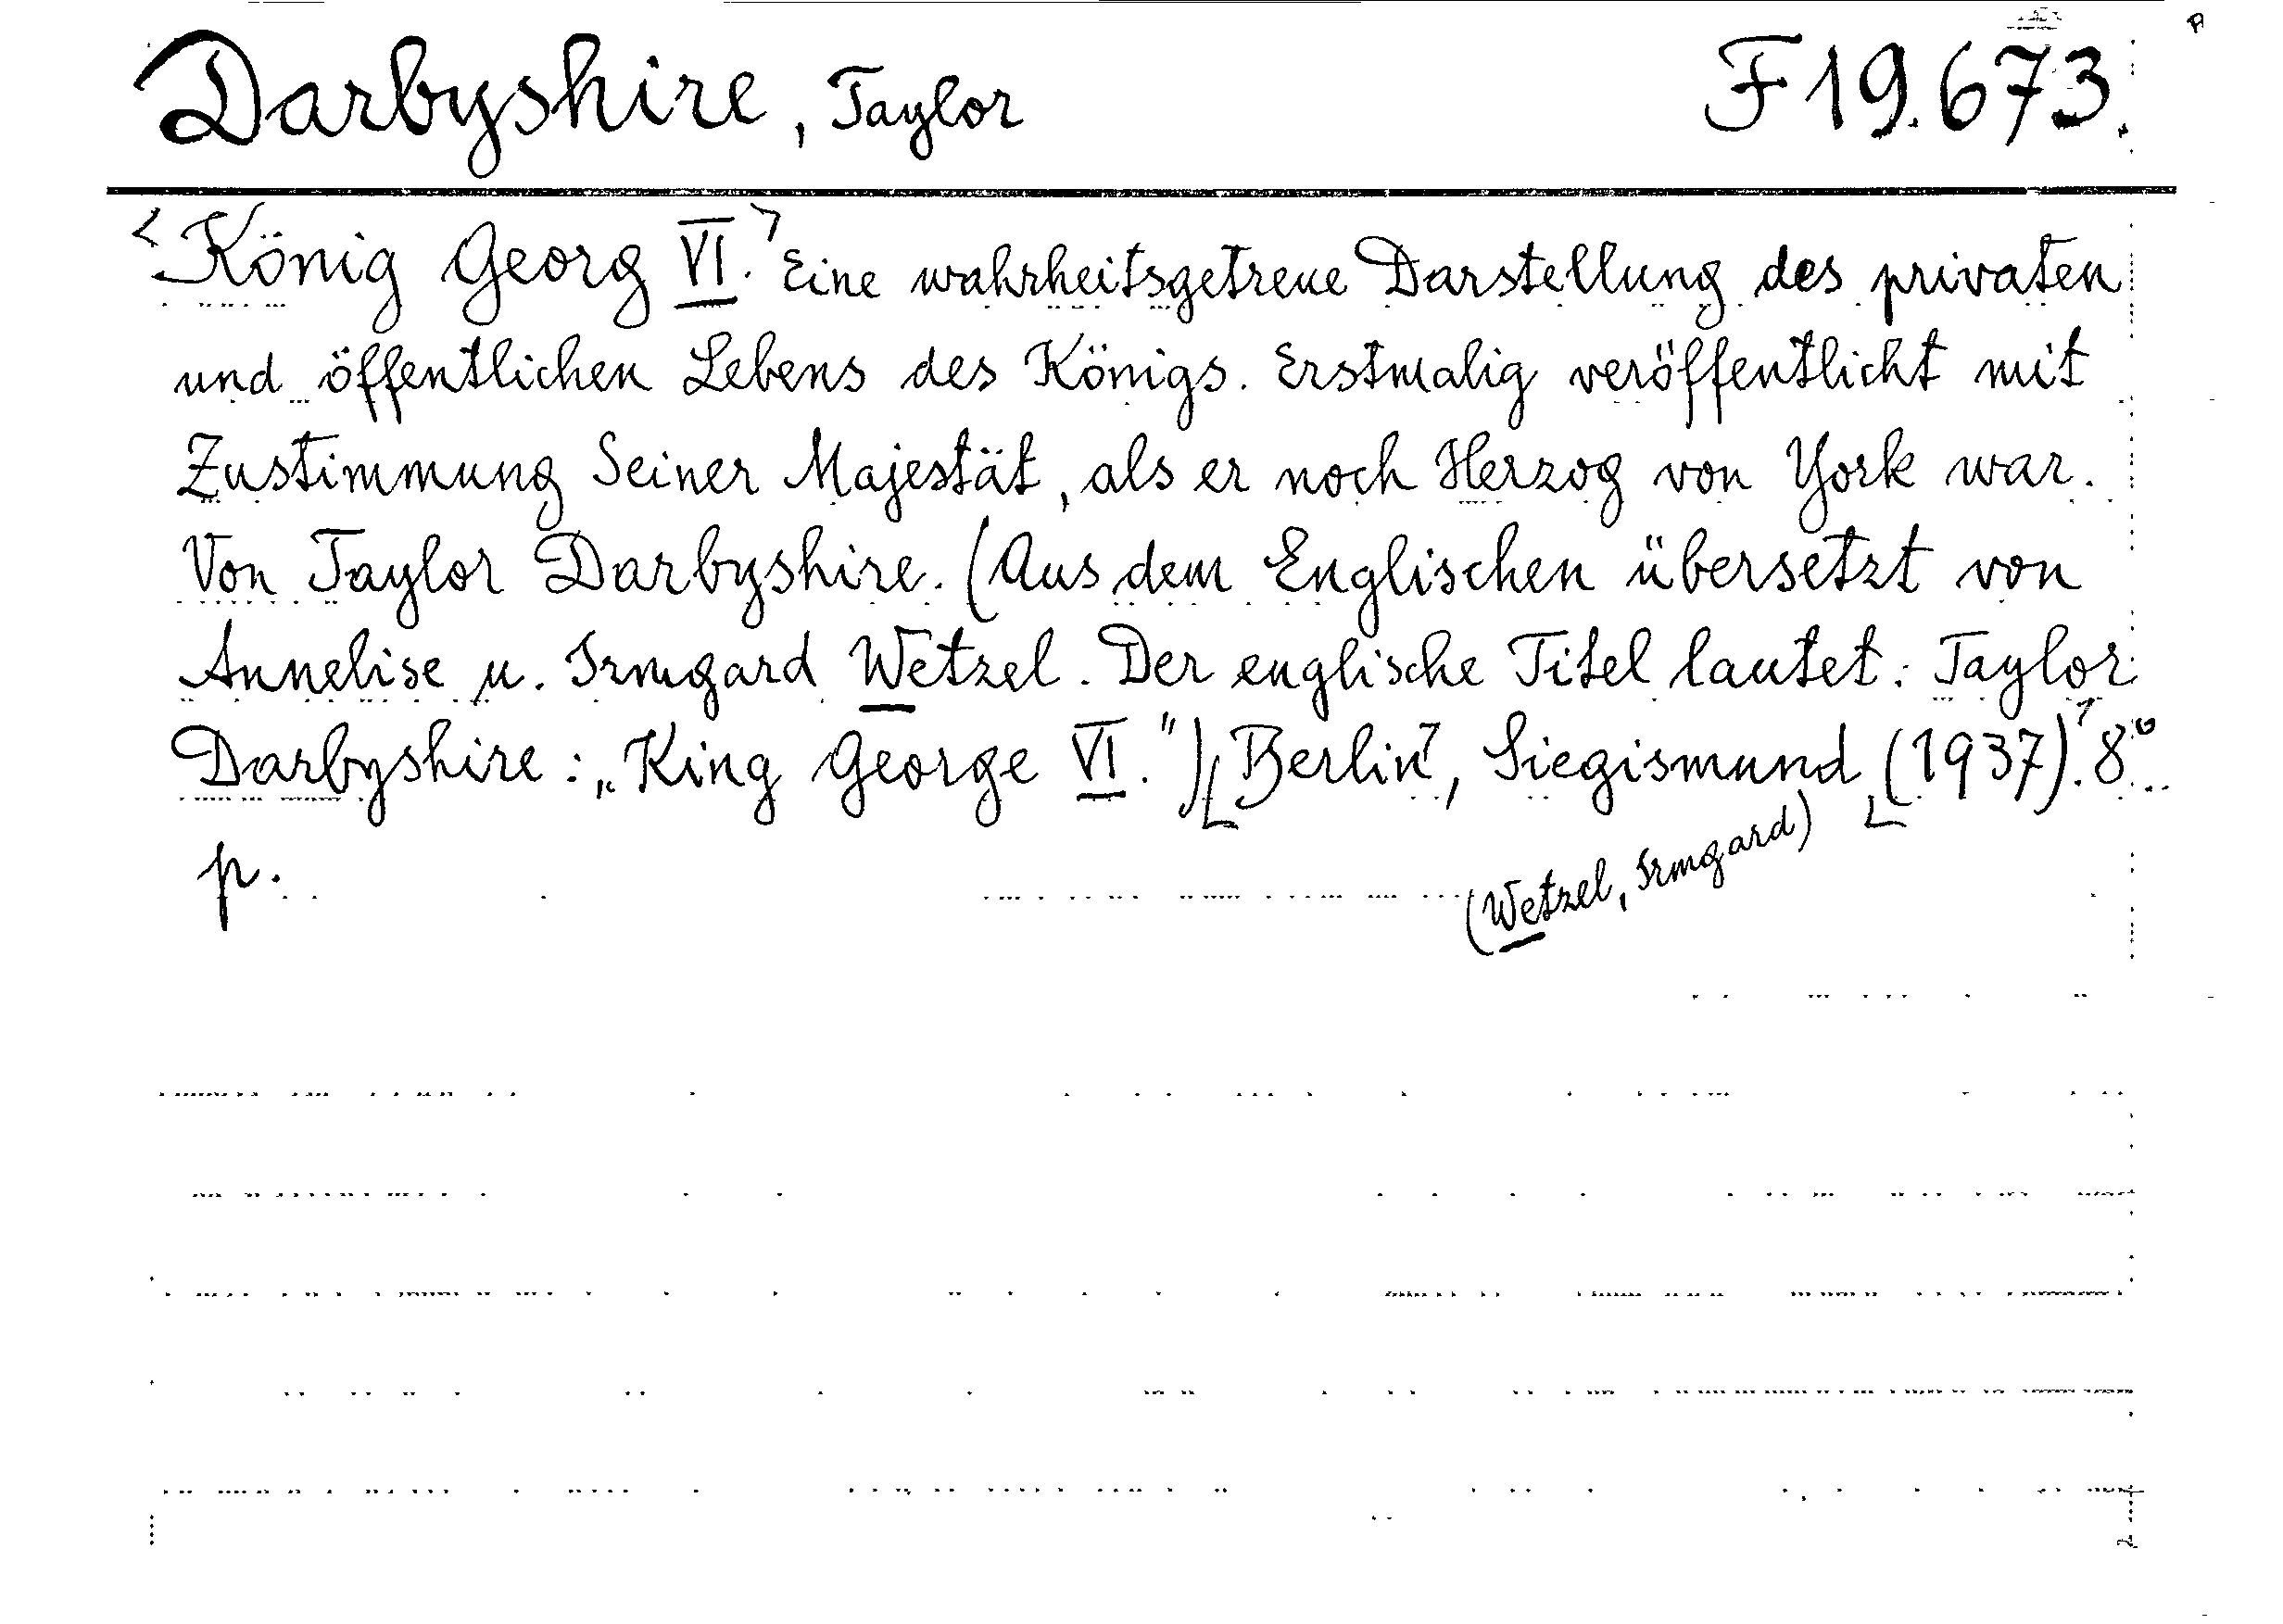 Darbyshire, Taylor F 19.673.
<König Georg VI.> Eine wahrheitsgetreue Darstellung des privaten
und öffentlichen Lebens des Königs. Erstmalig veröffentlicht mit
Zustimmung Seiner Majestät, als er noch Herzog von York war.
Von Taylor Darbyshire. (Aus dem Englischen übersetzt von
Annelise u. Irmgard Wetzel. Der englische Titel lautet: Taylor
Darbyshire: „King George VI.") [Berlin], Siegismund [(1937)]. 8°.
p.
(Wetzel, Irmgard)